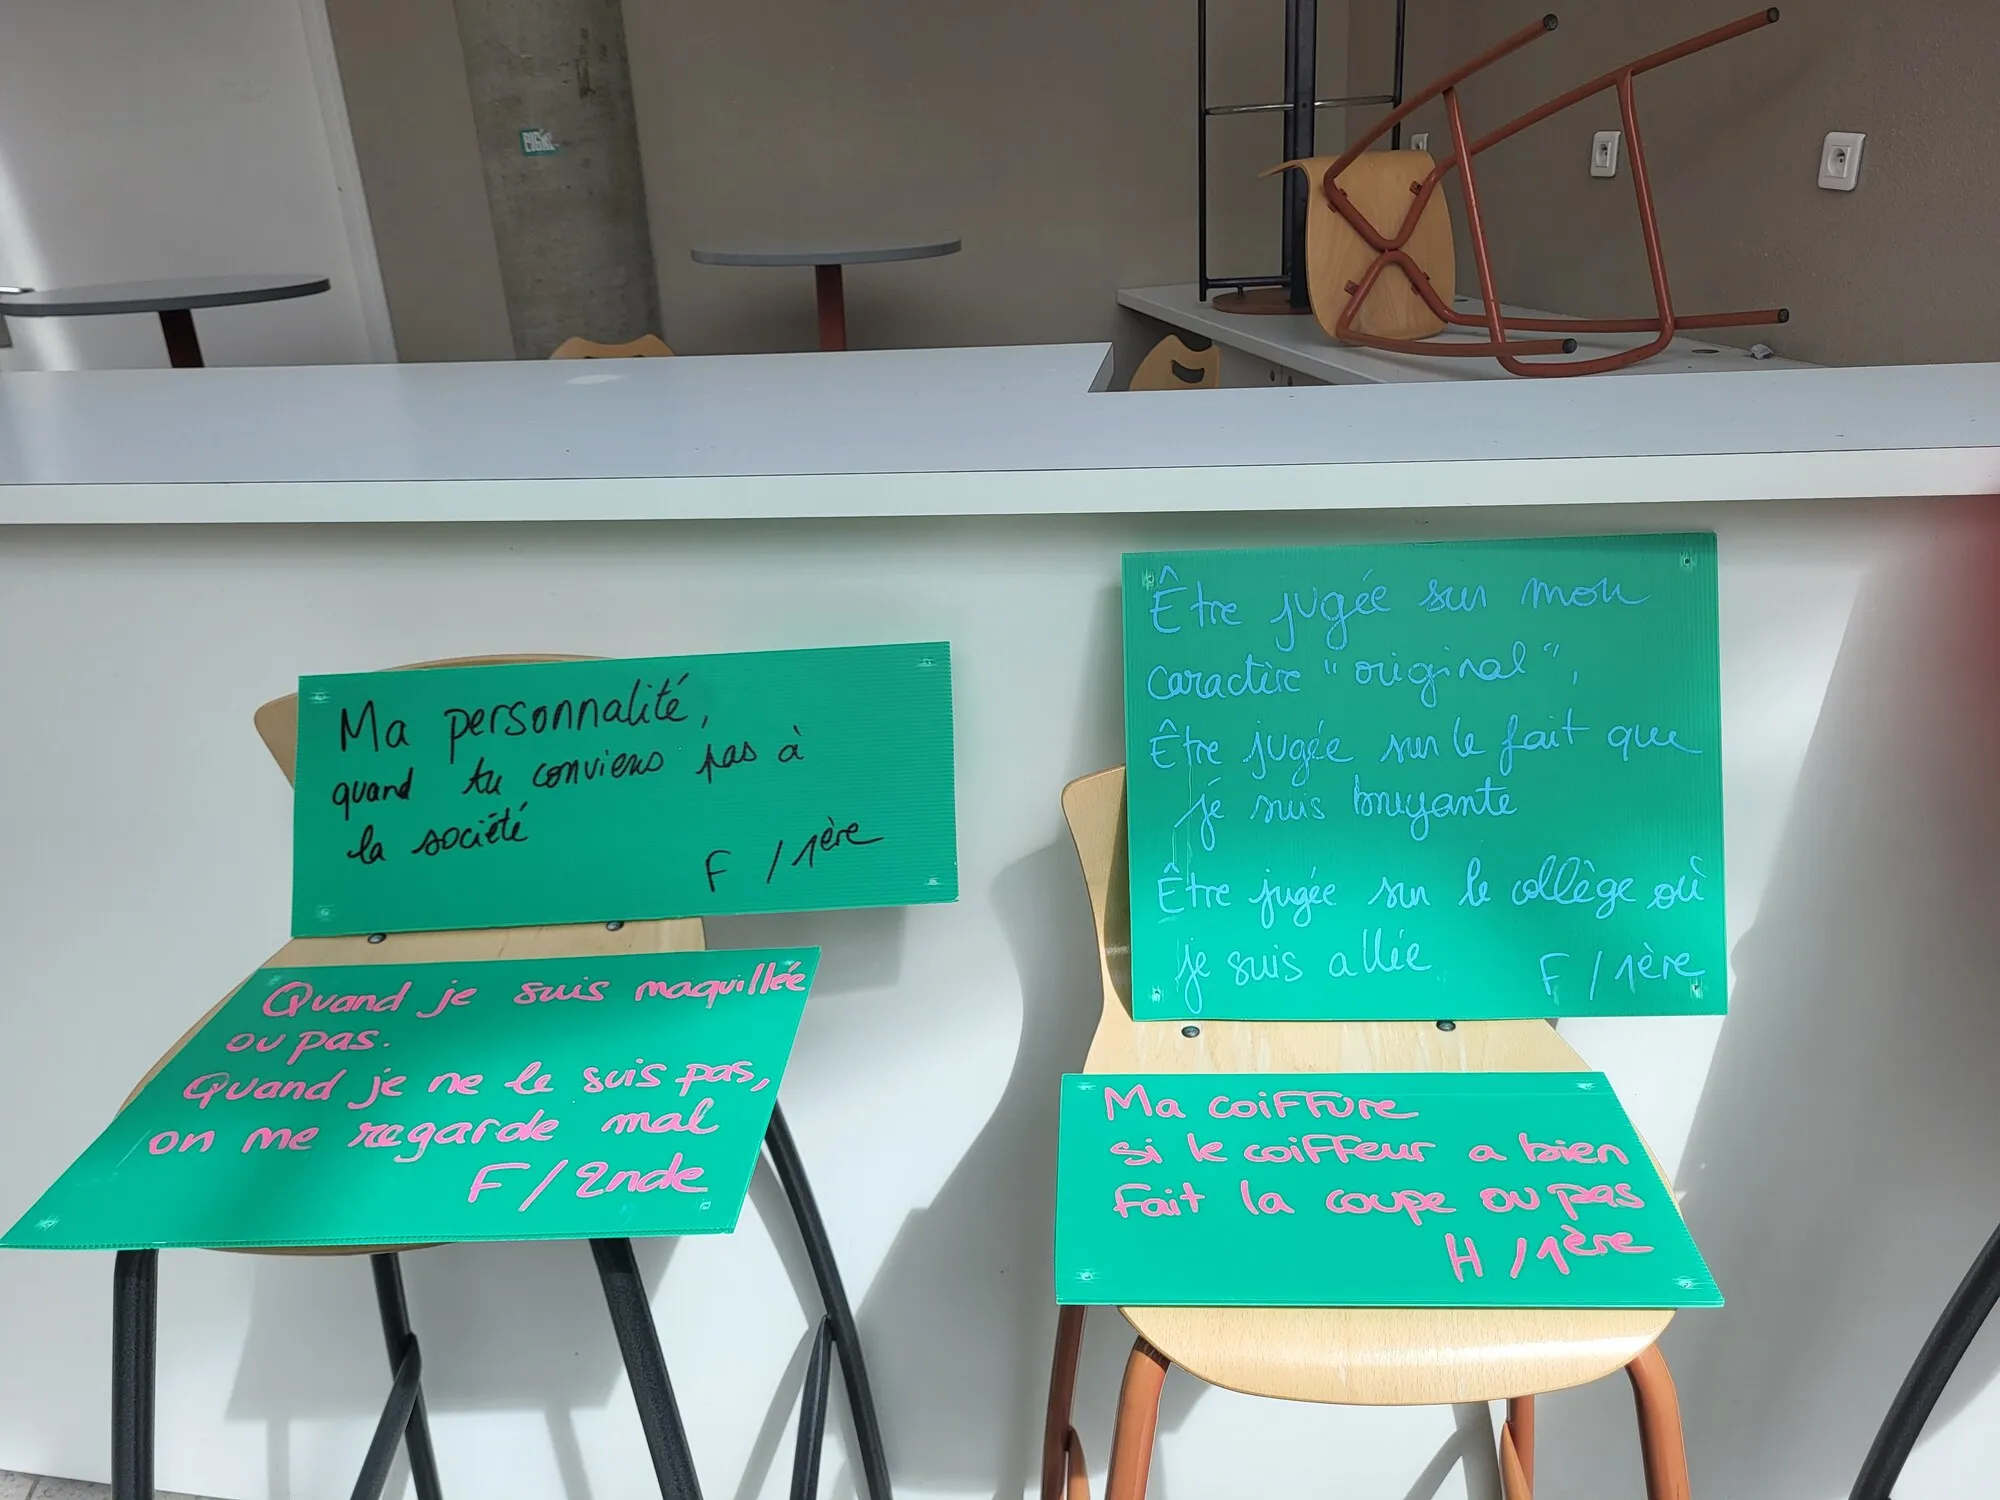 Ma personnalité,
quand tu conviens pas à
la société
F / 1ère
Quand je suis maquillée
ou pas.
Quand je ne le suis pas,
on me regarde mal
F / 2nde
Être jugée sur mon
caractère "original",
Être jugée sur le fait que
je suis bruyante
Être jugée sur le collège où
je suis allée
F / 1ère
Ma coiffure
si le coiffeur a bien
fait la coupe ou pas
H / 1ère